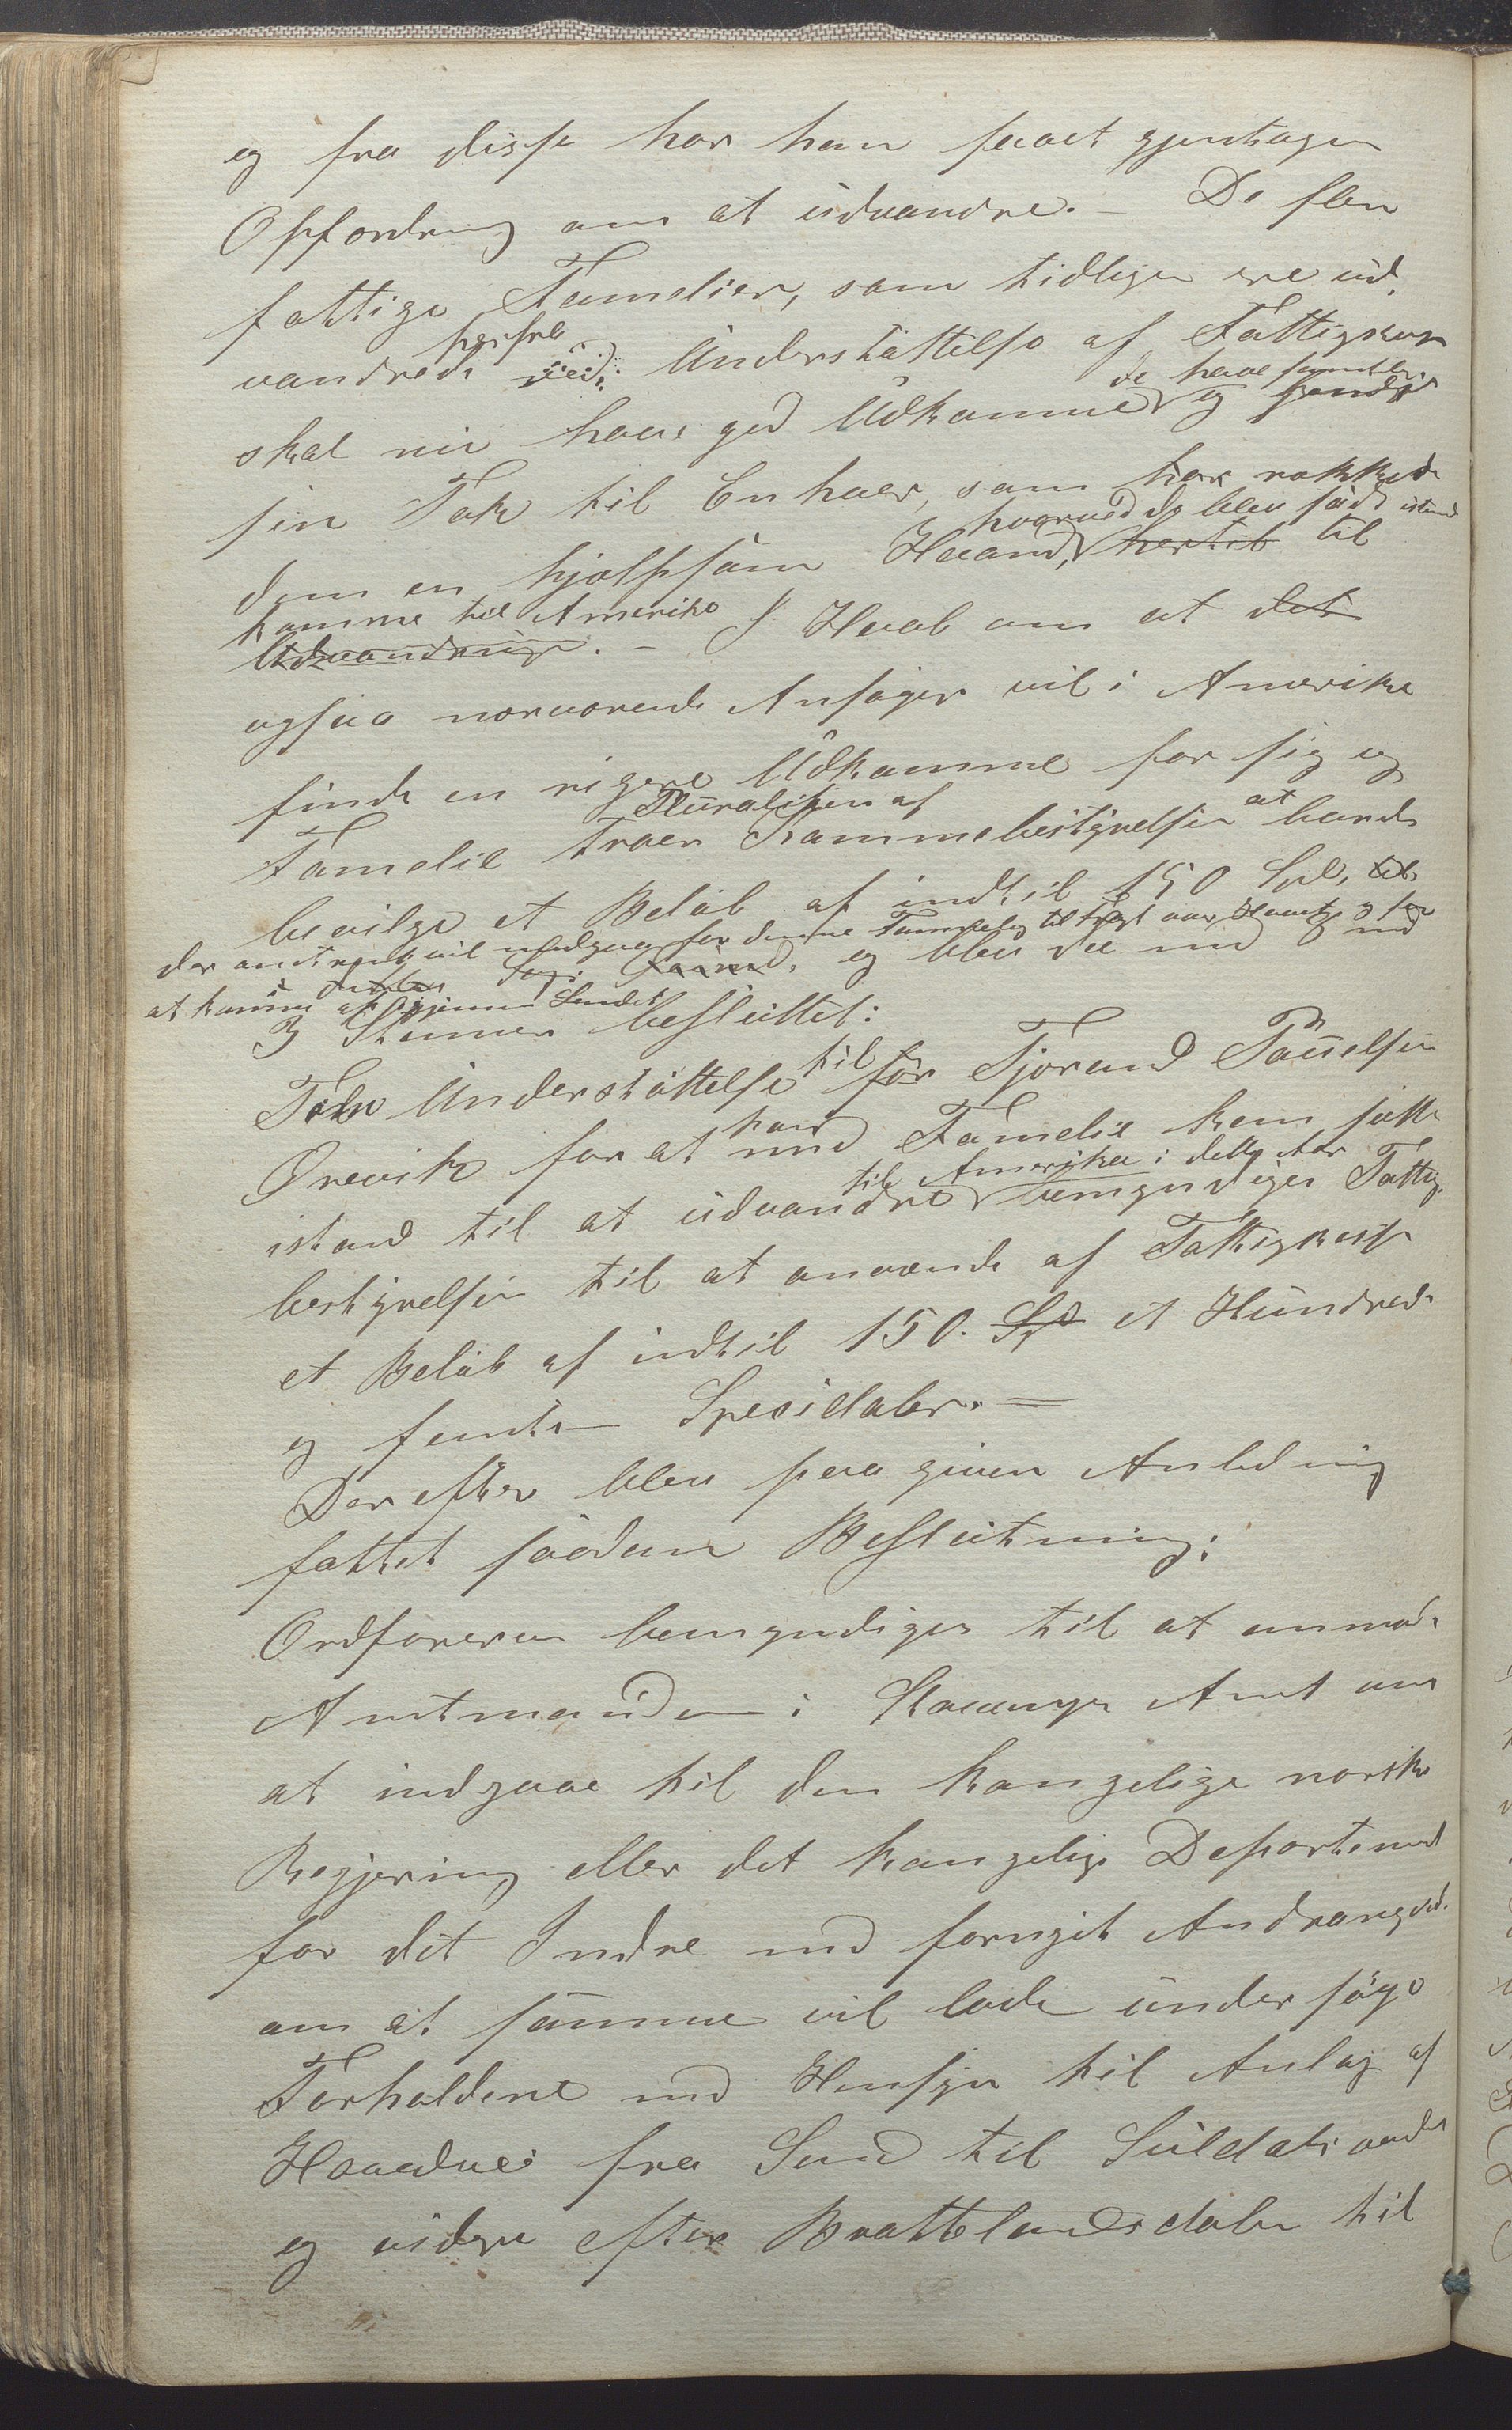 og fra disse har han faaet gjentagen
Opfordring om at udvandre. – De flere
fattige Familier, som tidligere ere ud-
herfra
vandrede ved: Understøttelse af Fattigkassen
de have sendt
skal nu have god Udkomme og sendt
sin Tak til Enhver, som har rakket
hvorved de blev sadt istand
dem en hjælpsom Haand, hertil til
komme til Amerika
Udvandring. – I Haab om at det
ogsaa nærværende Ansøger vil i Amerika
finde en rigere Udkomme for sig og
Pluraliteten af
Familie troer Kommebestyrelsen at burde
bevilge et Beløb af indtil 150 Spd, til
der antagelig vil medgaa for denne Familie til Fragt over Havet og for
og blev det med
at komme gjennem Landet
3 Stemmer besluttet:
til
Som Understøttelse for Tjerand Paulsen
han
Orevik for at med Familie kan sættes
til Amerika i dette Aar
istand til at udvandre bemyndiges Fattig-
bestyrelsen til at anvende af Fattigkassen
et Beløb af indtil 150. Spd et Hundrede
og femti Spesidaler. =
Derefter blev paa given Anledning
fattet saadan Beslutning:
Ordføreren bemyndiges til at anmode
Amtmanden i Stavanger Amt om
at indgaae til den kongelige norske
Regjering eller det kongelige Departement
for det Indre med fornyet Andragende
om at samme vil lade undersøge
Forholdene med Hensyn til Anlæg af
Hovedvei fra Sand til Suldalsvandet
og videre efter Brattelandsdalen til